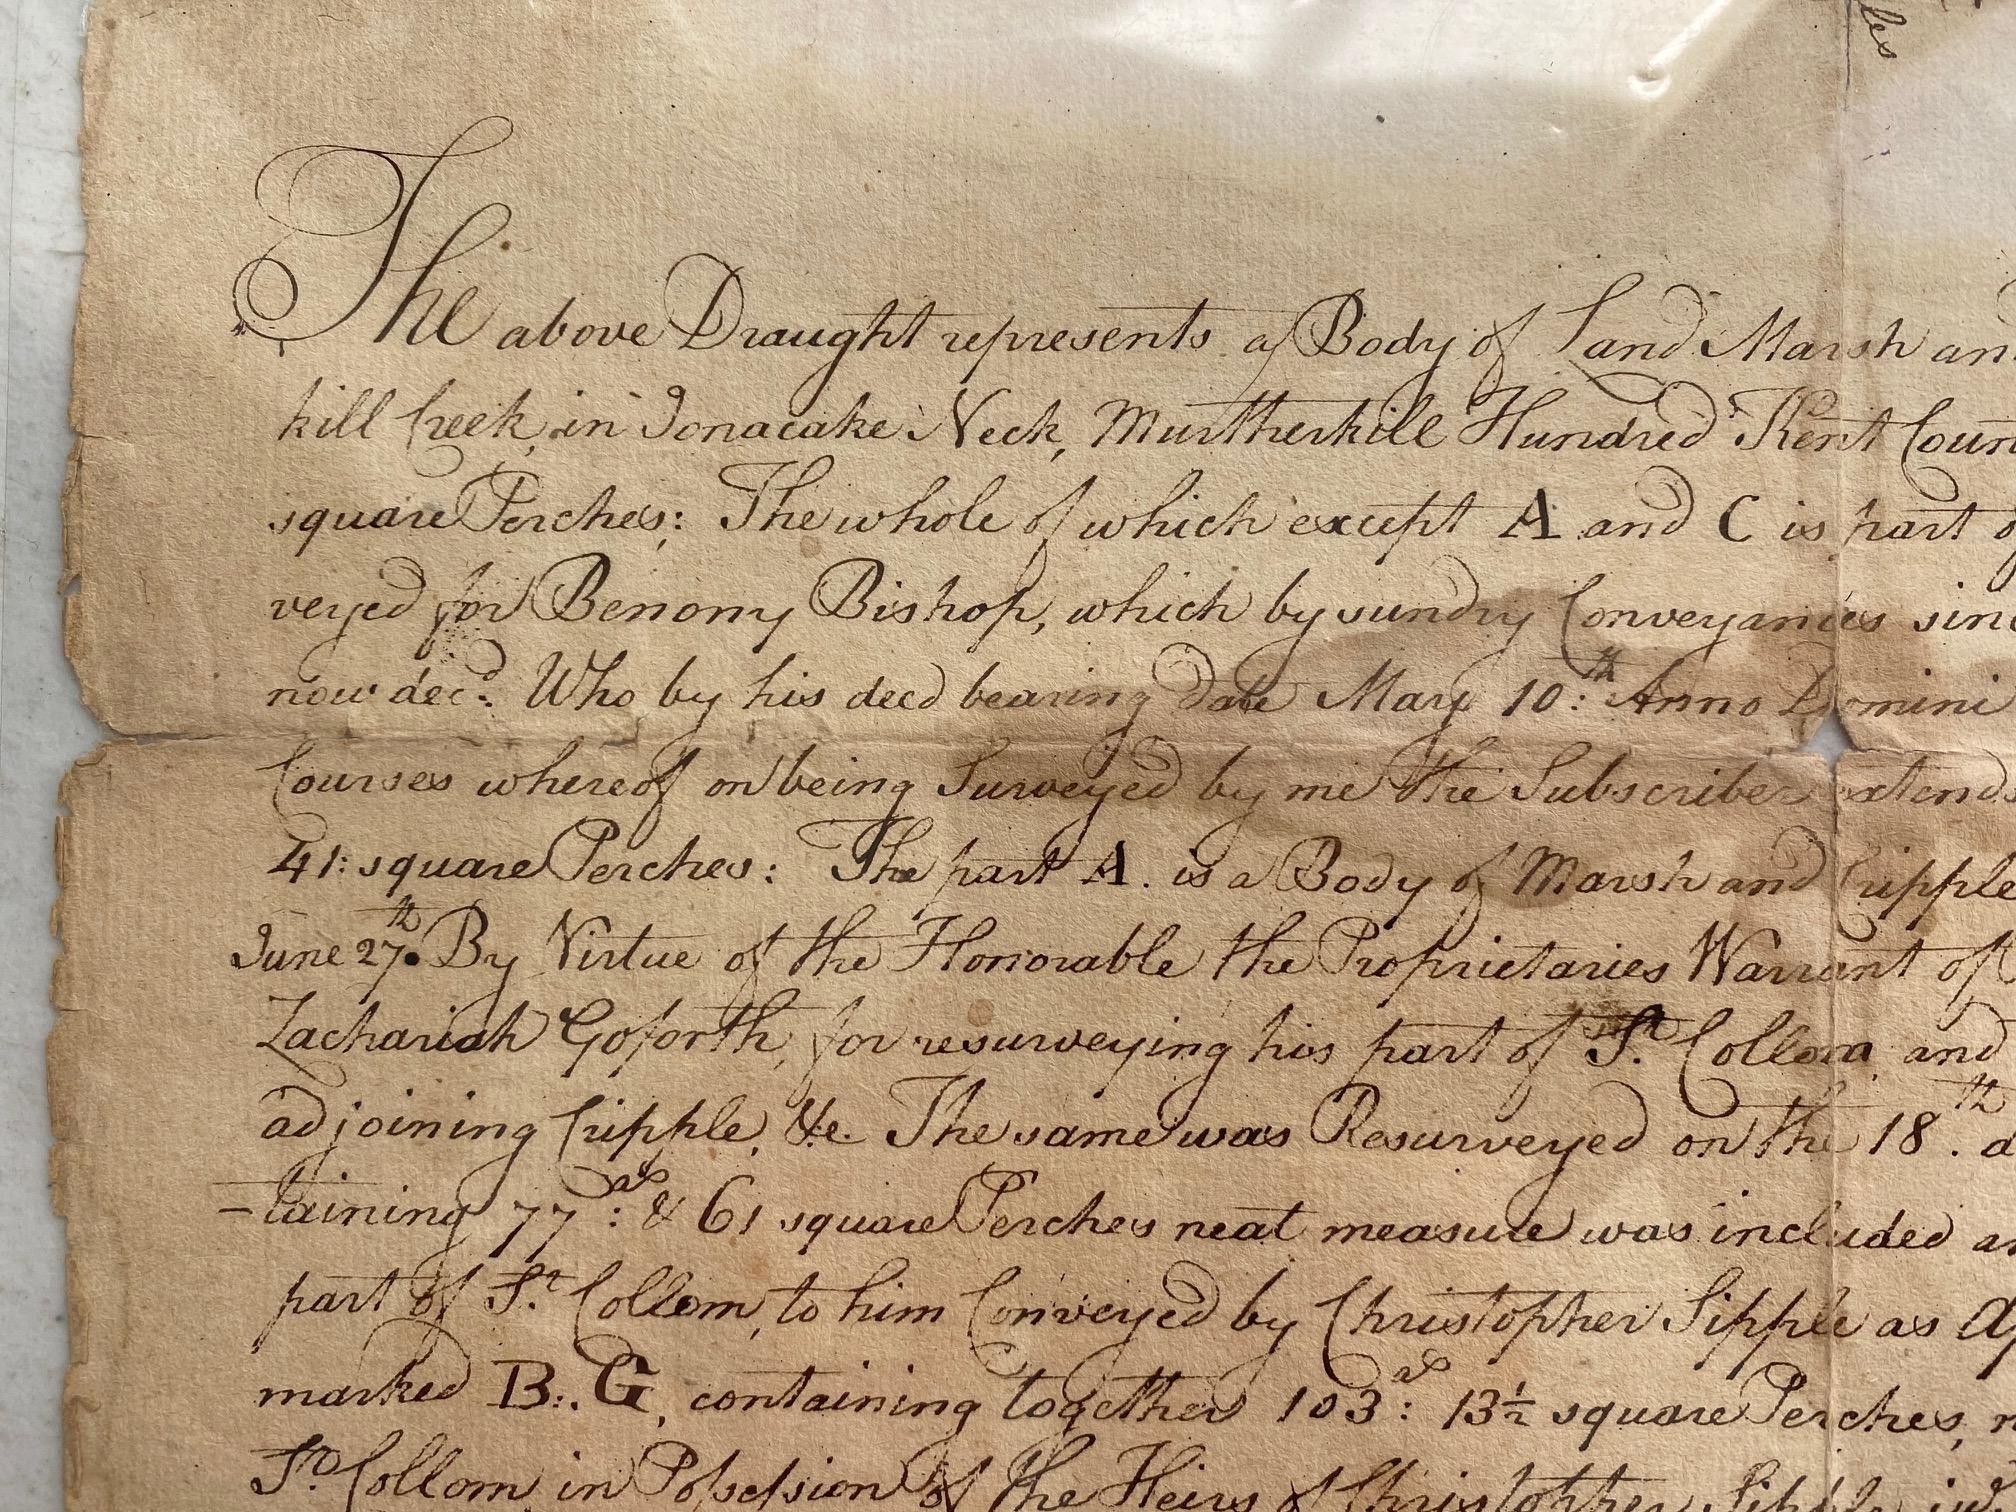 les
The above Draught represents a Body of Land Marsh an
kill Creek, in Jonacake Neck, Murtherkill Hundred Kent Coun
square Perches: The whole of which except A and C is part o
veyed for Benony Bishop, which by sundry Conveyances sinc
now decd. Who by his deed bearing date May 10:th Anno Domini
Courses whereof on being Surveyed by me the Subscriber extends
41: square Perches: The part A. is a Body of Marsh and Cripple
June 27th. By Virtue of the Honorable the Proprietaries Warrant of
Zachariah Goforth, for resurveying his part of St. Collom and
adjoining Cripple, &c. The same was Resurveyed on the 18th. d
-taining 77as: & 61 square Perches neat measure was included an
part of St. Collom, to him Conveyed by Christopher Sipple as Ap
marked B:. G, containing together 103as: 13½ square Perches, n
St. Collom in Possession of the Heirs of Christopher Sipple